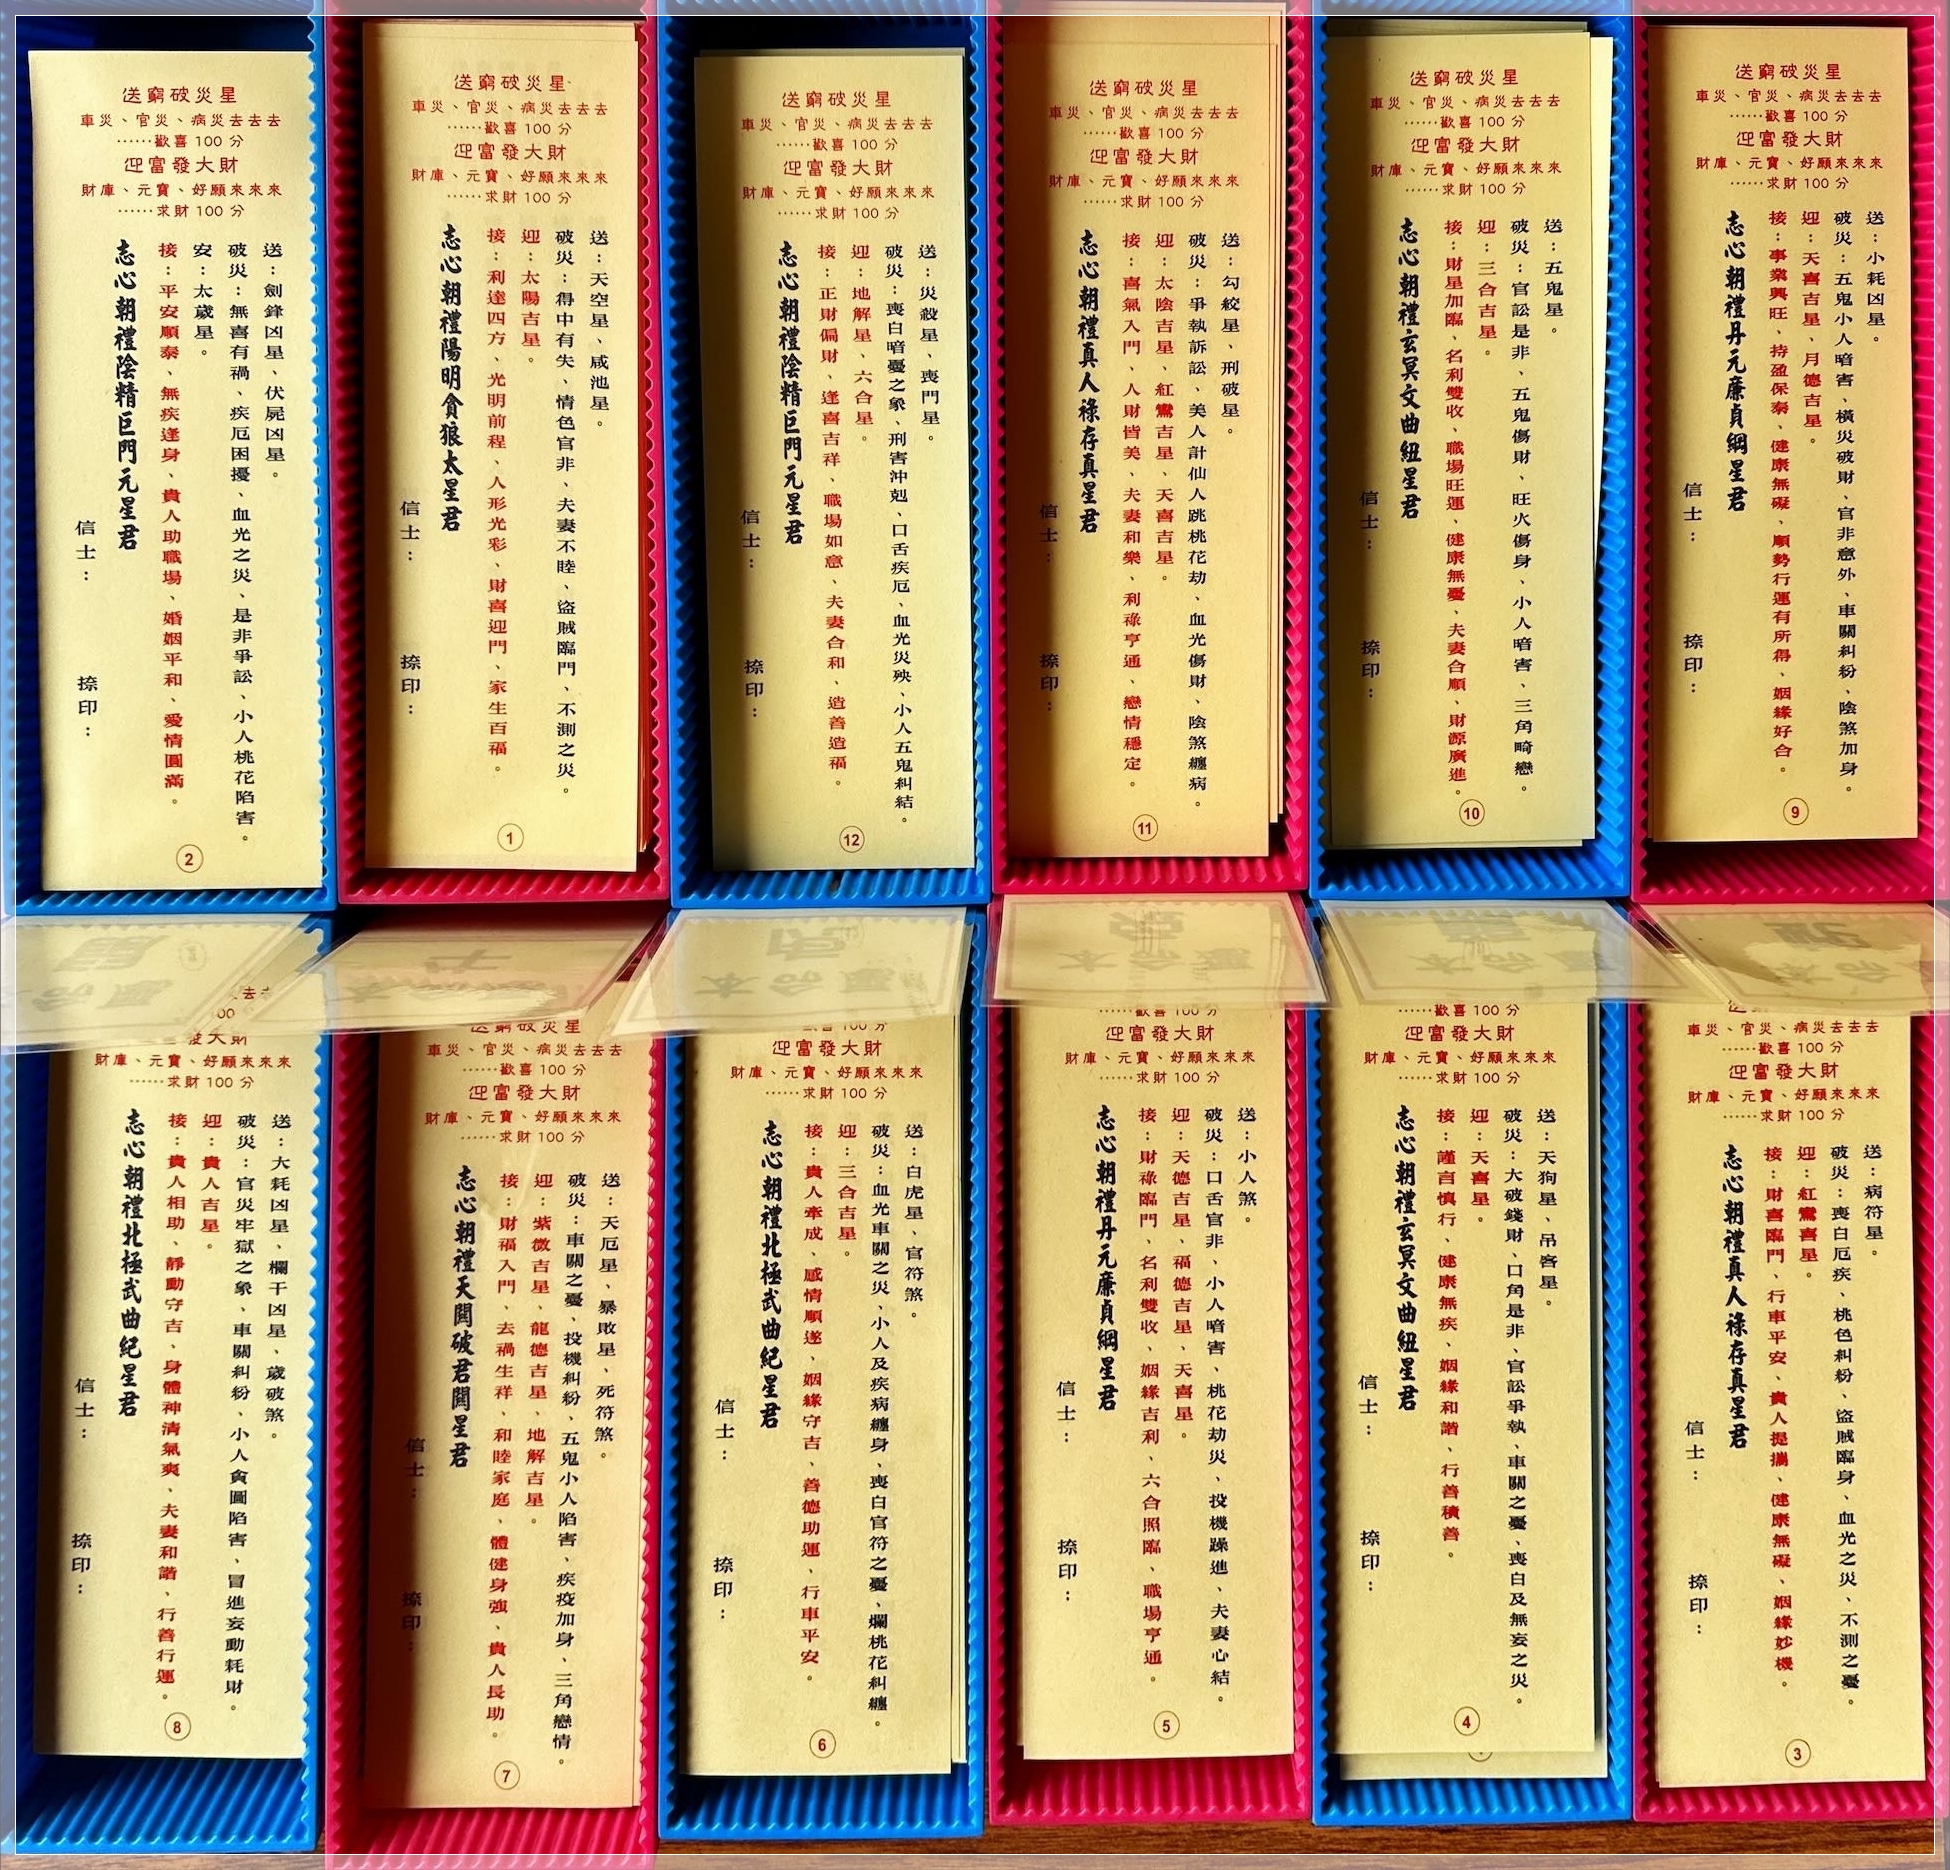 送窮破災星
車災、官災、病災去去去
……歡喜100分
迎富發大財
財庫、元寶、好願來來來
……求財100分
送：劍鋒凶星、伏屍凶星。
破災：無喜有禍、疾厄困擾、血光之災、是非爭訟、小人桃花陷害。
安：太歲星。
接：平安順泰、無疾逢身、貴人助職場、婚姻平和、愛情圓滿。
志心朝禮陰精巨門元星君
信士：
捺印：
2
送窮破災星
車災、官災、病災去去去
……歡喜100分
迎富發大財
財庫、元寶、好願來來來
……求財100分
送：天空星、咸池星。
破災：得中有失、情色官非、夫妻不睦、盜賊臨門、不測之災。
迎：太陽吉星。
接：利達四方、光明前程、人形光彩、財喜迎門、家生百福。
志心朝禮陽明貪狼太星君
信士：
捺印：
1
送窮破災星
車災、官災、病災去去去
……歡喜100分
迎富發大財
財庫、元寶、好願來來來
……求財100分
送：災殺星、喪門星。
破災：喪白暗憂之象、刑害沖剋、口舌疾厄、血光災殃、小人五鬼糾結。
迎：地解星、六合星。
接：正財偏財、逢喜吉祥、職場如意、夫妻合和、造善造福。
志心朝禮陰精巨門元星君
信士：
捺印：
12
送窮破災星
車災、官災、病災去去去
……歡喜100分
迎富發大財
財庫、元寶、好願來來來
……求財100分
送：勾絞星、刑破星。
破災：爭執訴訟、美人計仙人跳桃花劫、血光傷財、陰煞纏病。
迎：太陰吉星、紅鸞吉星、天喜吉星。
接：喜氣入門、人財皆美、夫妻和樂、利祿亨通、戀情穩定。
志心朝禮真人祿存真星君
信士：
捺印：
11
送窮破災星
車災、官災、病災去去去
……歡喜100分
迎富發大財
財庫、元寶、好願來來來
……求財100分
送：五鬼星。
破災：官訟是非、五鬼傷財、旺火傷身、小人暗害、三角畸戀。
迎：三合吉星。
接：財星加臨、名利雙收、職場旺運、健康無憂、夫妻合順、財源廣進。
志心朝禮玄冥文曲紐星君
信士：
捺印：
10
送窮破災星
車災、官災、病災去去去
……歡喜100分
迎富發大財
財庫、元寶、好願來來來
……求財100分
送：小耗凶星。
破災：五鬼小人暗害、橫災破財、官非意外、車關糾紛、陰煞加身。
迎：天喜吉星、月德吉星。
接：事業興旺、持盈保泰、健康無礙、順勢行運有所得、姻緣好合。
志心朝禮丹元廉貞綱星君
信士：
捺印：
9
財庫、元寶、好願來來來
……求財100分
送：大耗凶星、欄干凶星、歲破煞。
破災：官災牢獄之象、車關糾紛、小人貪圖陷害、冒進妄動耗財。
迎：貴人吉星。
接：貴人相助、靜動守吉、身體神清氣爽、夫妻和諧、行善行運。
志心朝禮北極武曲紀星君
信士：
捺印：
8
送窮破災星
車災、官災、病災去去去
……歡喜100分
迎富發大財
財庫、元寶、好願來來來
……求財100分
送：天厄星、暴敗星、死符煞。
破災：車關之憂、投機糾紛、五鬼小人陷害、疾疫加身、三角戀情。
迎：紫微吉星、龍德吉星、地解吉星。
接：財福入門、去禍生祥、和睦家庭、體健身強、貴人長助。
志心朝禮天關破君關星君
信士：
捺印：
7
歡喜100分
迎富發大財
財庫、元寶、好願來來來
……求財100分
送：白虎星、官符煞。
破災：血光車關之災、小人及疾病纏身、喪白官符之憂、爛桃花糾纏。
迎：三合吉星。
接：貴人牽成、感情順遂、姻緣守吉、善德助運、行車平安。
志心朝禮北極武曲紀星君
信士：
捺印：
6
……歡喜100分
迎富發大財
財庫、元寶、好願來來來
……求財100分
送：小人煞。
破災：口舌官非、小人暗害、桃花劫災、投機躁進、夫妻心結。
迎：天德吉星、福德吉星、天喜星。
接：財祿臨門、名利雙收、姻緣吉利、六合照臨、職場亨通。
志心朝禮丹元廉貞綱星君
信士：
捺印：
5
……歡喜100分
迎富發大財
財庫、元寶、好願來來來
……求財100分
送：天狗星、吊客星。
破災：大破錢財、口角是非、官訟爭執、車關之憂、喪白及無妄之災。
迎：天喜星。
接：謹言慎行、健康無疾、姻緣和諧、行善積善。
志心朝禮玄冥文曲紐星君
信士：
捺印：
4
車災、官災、病災去去去
……歡喜100分
迎富發大財
財庫、元寶、好願來來來
……求財100分
送：病符星。
破災：喪白厄疾、桃色糾紛、盜賊臨身、血光之災、不測之憂。
迎：紅鸞喜星。
接：財喜臨門、行車平安、貴人提攜、健康無礙、姻緣妙機。
志心朝禮真人祿存真星君
信士：
捺印：
3